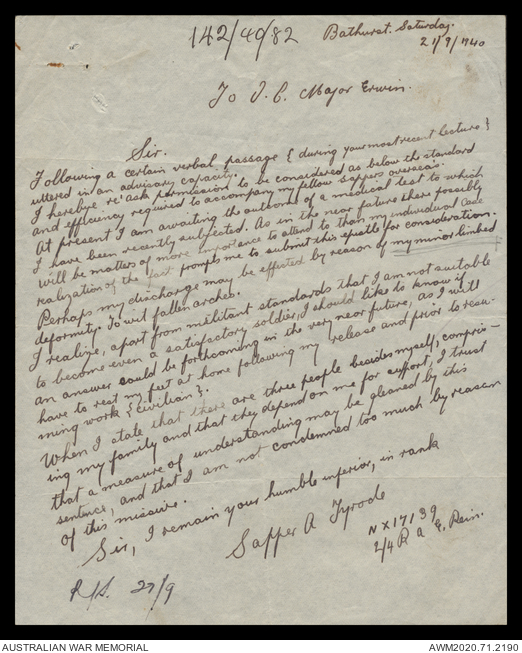 142/40/82
Bathurst. Saturday.
21/9/1940
To O. C. Major Erwin.
Sir.
Following a certain verbal passage { during your most recent lecture }
uttered in an advisory capacity.
I herebye re'ask permission to be considered as below the standard
and efficiency required to accompany my fellow sappers overseas.
At present I am awaiting the outcome of a medical test to which
I have been recently subjected. As in the near future there possibly
will be matters of more importance to attend to than my individual case
realization of the fact prompts me to submit this epistle for consideration.
Perhaps my discharge may be effected by reason of my minor limbed
deformity. To wit fallen arches.
I realize, apart from militant standards that I am not suitable
to become even a satisfactory soldier, I should like to know if
an answer could be forthcoming in the very near future, as I will
have to rest my feet at home following my release and prior to resu-
ming work {civilian}.
When I state that there are three people besides myself, compris-
ing my family and that they depend on me for support, I trust
that a measure of understanding may be gleaned by this
sentence, and that I am not condemned too much by reason
of this missive.
Sir, I remain your humble inferior, in rank
Sapper A Tyrode
NX17139
2/4 R A E, Rein.
27/9
AUSTRALIAN WAR MEMORIAL
AWM2020.71.2190